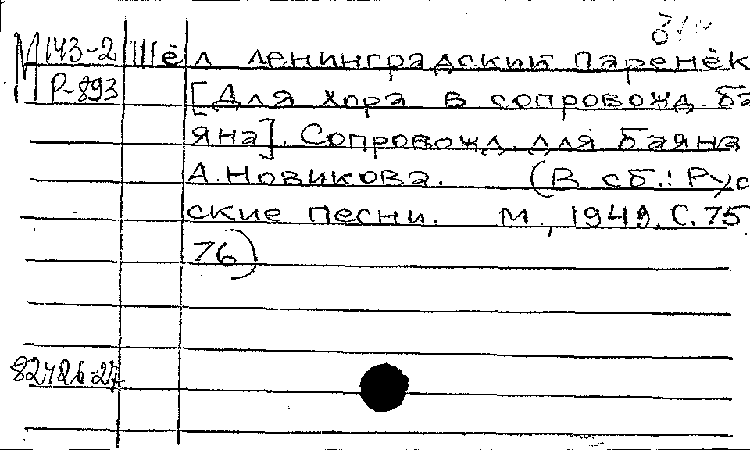 М 143-2 Шёл ленинградский паренёк
Р-893 [Для хора в сопровожд. ба
яна]. Сопровожд. для баяна
А. Новикова. (В сб.: Рус
ские песни. М., 1949. С. 75
76)